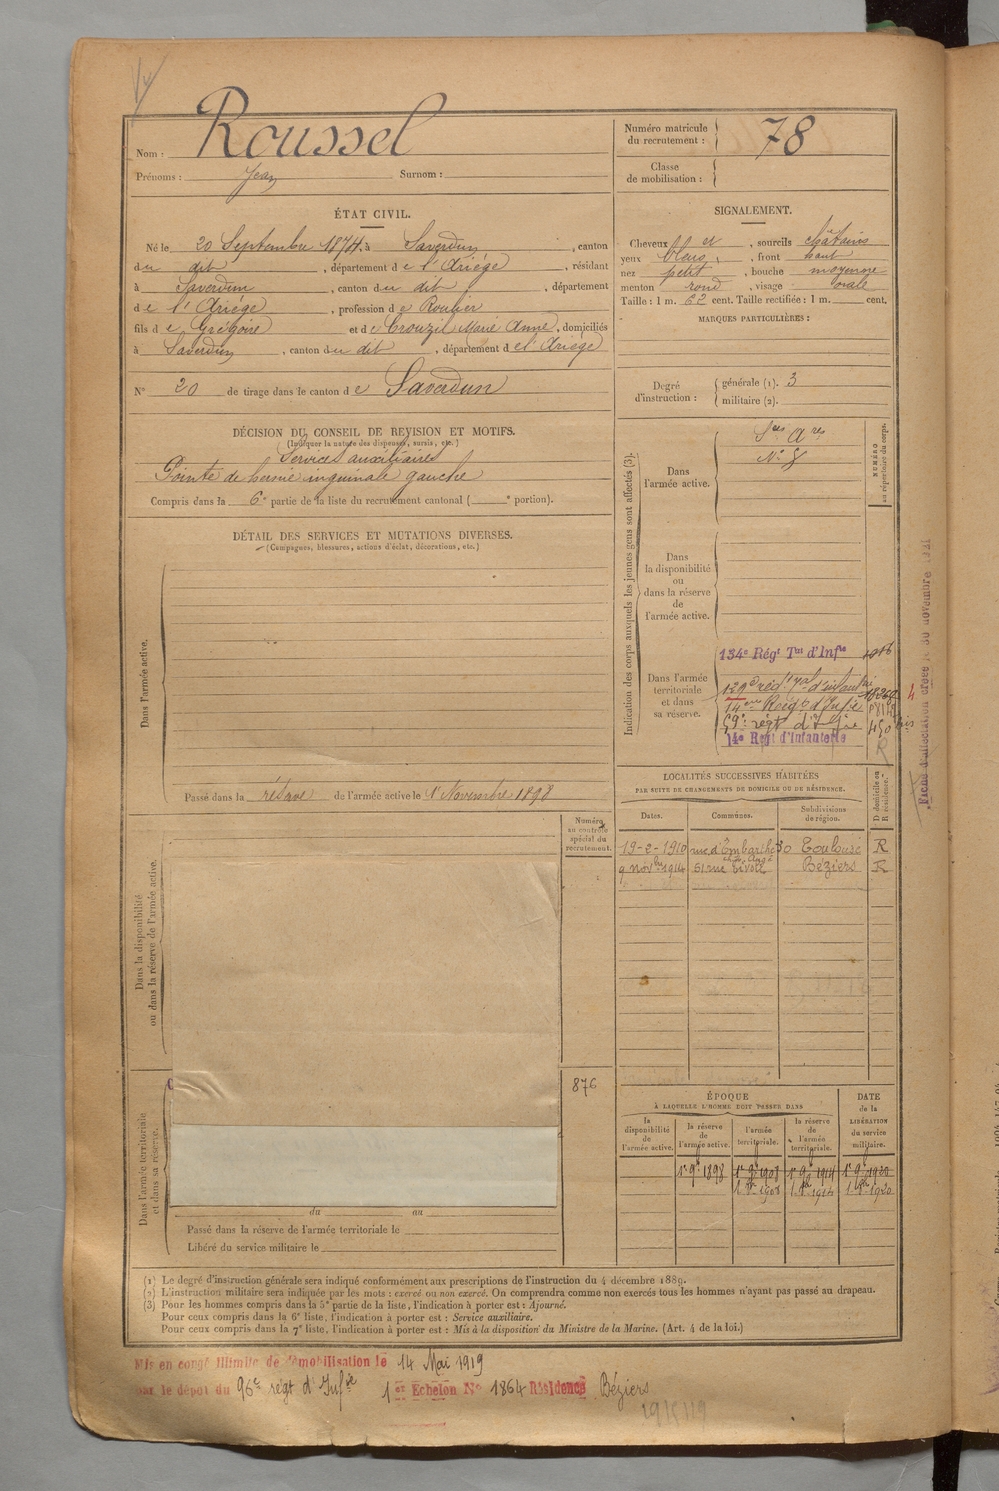 Roussel
Nom :
Prénoms : Jean Surnom :
ÉTAT CIVIL.
Né le 20 Septembre 1874, à Saverdun, canton
du dit, département de l'Ariège, résidant
à Saverdun, canton du dit, département
de l'Ariège, profession de Roulier
fils de Grégoire et de Crouzil Marie Anne, domiciliés
à Saverdun, canton du dit, département de l'Ariège
N° 20 de tirage dans le canton de Saverdun
DÉCISION DU CONSEIL DE REVISION ET MOTIFS.
(Indiquer la nature des dispenses, sursis, etc.)
Services auxiliaires
Pointe de hernie inguinale gauche
Compris dans la 6e partie de la liste du recrutement cantonal ( e portion).
DÉTAIL DES SERVICES ET MUTATIONS DIVERSES.
(Campagnes, blessures, actions d'éclat, décorations, etc.)
Dans l'armée active.
Passé dans la réserve de l'armée active le 1er Novembre 1898
Numéro
au contrôle
spécial du
recrutement.
Dans la disponibilité
ou dans la réserve de l'armée active.
876
Dans l'armée territoriale
et dans sa réserve.
du au
Passé dans la réserve de l'armée territoriale le
Libéré du service militaire le
Numéro matricule
du recrutement : 78
Classe
de mobilisation :
SIGNALEMENT.
Cheveux et, sourcils châtains
yeux bleus, front haut
nez petit, bouche moyenne
menton rond, visage ovale
Taille : 1 m. 62 cent. Taille rectifiée : 1 m. cent.
MARQUES PARTICULIÈRES :
Degré
d'instruction :
générale (1). 3
militaire (2).
Indication des corps auxquels les jeunes gens sont affectés (3).
NUMÉRO
au répertoire du corps.
Dans
l'armée active.
Ses Ares
Dans
la disponibilité
ou
dans la réserve
de
l'armée active.
Dans l'armée
territoriale
et dans
sa réserve.
134e Régt Tal d'Infie
129e
14me Régt d'Infie
59e régt d'Infie 450 bis
14e Regt d'Infanterie R
Fiche d'affectation créée le 30 novembre 1931
LOCALITÉS SUCCESSIVES HABITÉES
PAR SUITE DE CHANGEMENTS DE DOMICILE OU DE RÉSIDENCE.
D domicile ou
R résidence.
Dates. Communes. Subdivisions
de région.
19-2-1910 rue d'Embarthe 30 Toulouse R
9 novbre 1914 51 rue Béziers R
ÉPOQUE
À LAQUELLE L'HOMME DOIT PASSER DANS
DATE
de la
LIBÉRATION
du service
militaire.
la
disponibilité
de
l'armée active.
la réserve
de
l'armée active.
l'armée
territoriale.
la réserve
de
l'armée
territoriale.
1er 9bre 1898 1er 9bre 1908 1er 9bre 1914 1er 9bre 1920
1908 1914 1920
(1) Le degré d'instruction générale sera indiqué conformément aux prescriptions de l'instruction du 4 décembre 1889.
(2) L'instruction militaire sera indiquée par les mots : exercé ou non exercé. On comprendra comme non exercés tous les hommes n'ayant pas passé au drapeau.
(3) Pour les hommes compris dans la 5e partie de la liste, l'indication à porter est : Ajourné.
Pour ceux compris dans la 6e liste, l'indication à porter est : Service auxiliaire.
Pour ceux compris dans la 7e liste, l'indication à porter est : Mis à la disposition du Ministre de la Marine. (Art. 4 de la loi.)
Mis en congé illimité de démobilisation le 14 Mai 1919
par le dépôt du 96e régt d'Infie 1er Echelon N° 1864 Résidence Béziers